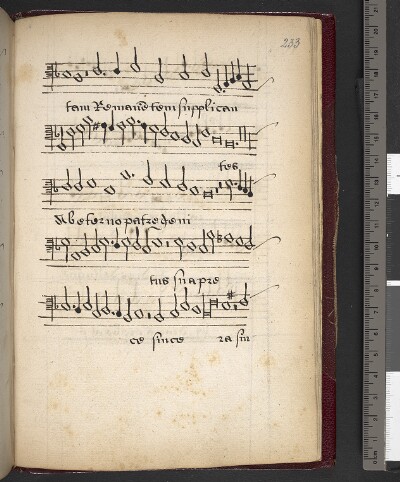 233
tam Remaneetem supplican
tes
Ab eterno patre geni
tus sua pre
ce since ra sin